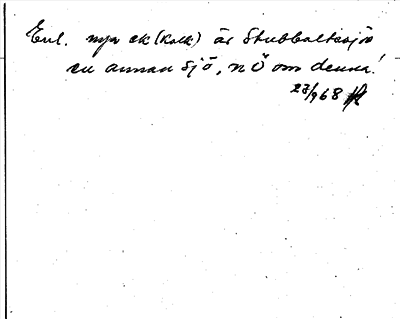 Enl. nya ek (Kalk) är Stubbaltesjö
en annan sjö, n ö om denna!
23/9 68